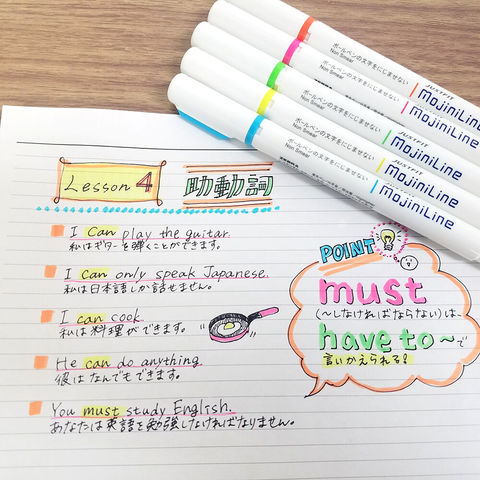 ボールペンの文字をにじませない
Non Smear
JUSTFIT
MojiniLine
ボールペンの文字をにじませない
Non Smear
JUSTFIT
MojiniLine
ボールペンの文字をにじませない
Non Smear
JUSTFIT
MojiniLine
ボールペンの文字をにじませない
Non Smear
JUSTFIT
MojiniLine
ボールペンの文字をにじませない
Non Smear
JUSTFIT
MojiniLine
Lesson 4 助動詞
I can play the guitar.
私はギターを弾くことができます。
I can only speak Japanese.
私は日本語しか話せません。
I can cook.
私は料理ができます。
He can do anything.
彼はなんでもできます。
You must study English.
あなたは英語を勉強しなければなりません。
POINT
must
(〜しなければならない)は、
have to〜で
言いかえられる!